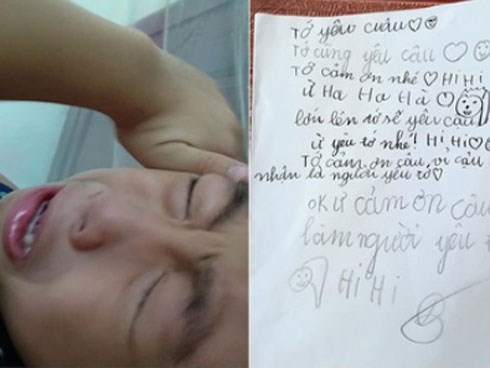 Tớ yêu cậu ♡
Tớ cũng yêu cậu ♡
Tớ cảm ơn nhé ♡ Hi Hi
ừ Ha Ha Hà ♡
lớn lên tớ sẽ yêu cậu
ừ yêu tớ nhé! Hi Hi ♡
Tớ cảm ơn cậu vì cậu
nhận là người yêu tớ ♡
ok ừ cảm ơn cậu
làm người yêu
Hi Hi